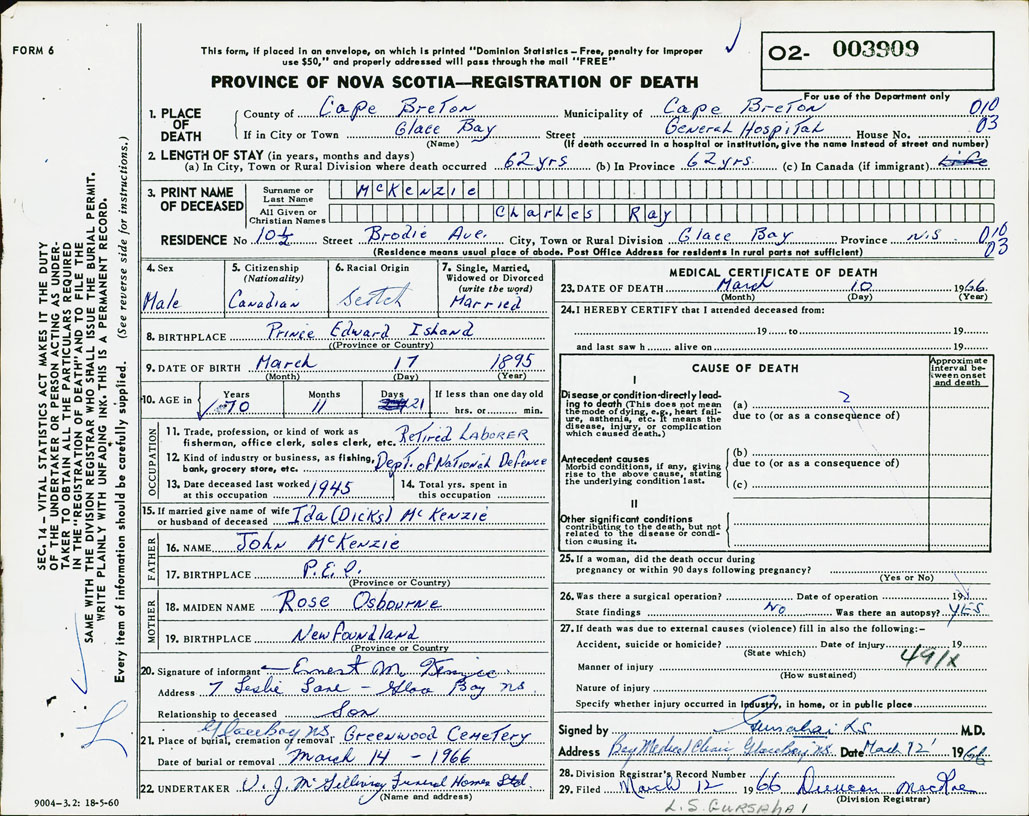 FORM 6
This form, if placed in an envelope, on which is printed "Dominion Statistics – Free, penalty for improper
use $50," and properly addressed will pass through the mail "FREE"
O2- 003909
PROVINCE OF NOVA SCOTIA—REGISTRATION OF DEATH
For use of the Department only
1. PLACE OF DEATH
County of Cape Breton Municipality of Cape Breton 010
If in City or Town Glace Bay Street General Hospital House No. 03
(Name) (If death occurred in a hospital or institution, give the name instead of street and number)
2. LENGTH OF STAY (in years, months and days)
(a) In City, Town or Rural Division where death occurred 62 yrs (b) In Province 62 yrs. (c) In Canada (if immigrant) Life
3. PRINT NAME OF DECEASED
Surname or Last Name McKenzie
All Given or Christian Names Charles Ray
RESIDENCE No 10½ Street Brodie Ave. City, Town or Rural Division Glace Bay Province N.S. 010
03
(Residence means usual place of abode. Post Office Address for residents in rural parts not sufficient)
4. Sex Male
5. Citizenship (Nationality) Canadian
6. Racial Origin Scotch
7. Single, Married, Widowed or Divorced (write the word) Married
8. BIRTHPLACE Prince Edward Island
((Province or Country)
9. DATE OF BIRTH March 17 1895
(Month) (Day) (Year)
10. AGE in Years 70 Months 11 Days 21 If less than one day old
hrs. or min.
OCCUPATION
11. Trade, profession, or kind of work as
fisherman, office clerk, sales clerk, etc. Retired LABORER
12. Kind of industry or business, as fishing,
bank, grocery store, etc. Dept. of National Defence
13. Date deceased last worked at this occupation 1945
14. Total yrs. spent in this occupation
15. If married give name of wife
or husband of deceased Ida (Dicks) McKenzie
FATHER
16. NAME John McKenzie
17. BIRTHPLACE P.E.I.
(Province or Country)
MOTHER
18. MAIDEN NAME Rose Osbourne
19. BIRTHPLACE Newfoundland
(Province or Country)
20. Signature of informant Ernest McKenzie
Address 7 Leslie Lane – Glace Bay NS
Relationship to deceased Son
Glace Bay N.S.
21. Place of burial, cremation or removal Greenwood Cemetery
Date of burial or removal March 14 - 1966
22. UNDERTAKER V. J. McGillivray Funeral Homes Ltd.
(Name and address)
9004-3.2: 18-5-60
MEDICAL CERTIFICATE OF DEATH
23. DATE OF DEATH March 10 1966
(Month) (Day) (Year)
24. I HEREBY CERTIFY that I attended deceased from:
19 to 19
and last saw h alive on 19
CAUSE OF DEATH
Approximate interval between onset and death
I
Disease or condition directly leading to death (This does not mean the mode of dying, e.g., heart failure, asthenia, etc. It means the disease, injury, or complication which caused death.)
(a) ?
due to (or as a consequence of)
Antecedent causes
Morbid conditions, if any, giving rise to the above cause, stating the underlying condition last.
(b)
due to (or as a consequence of)
(c)
II
Other significant conditions
contributing to the death, but not related to the disease or condition causing it.
25. If a woman, did the death occur during
pregnancy or within 90 days following pregnancy?
(Yes or No)
26. Was there a surgical operation? Date of operation 19
State findings No Was there an autopsy? YES
27. If death was due to external causes (violence) fill in also the following:–
Accident, suicide or homicide? Date of injury 19
(State which) 491x
Manner of injury
(How sustained)
Nature of injury
Specify whether injury occurred in Industry, in home, or in public place
Signed by Gursahai LS M.D.
Address Bay Medical Clinic, Glace Bay N.S. Date Mach 12 1966
28. Division Registrar's Record Number
29. Filed March 12 1966 Duncan MacRae
(Division Registrar)
L. S. GURSAHAI
SEC. 14 – VITAL STATISTICS ACT MAKES IT THE DUTY
OF THE UNDERTAKER OR PERSON ACTING AS UNDER-
TAKER TO OBTAIN ALL THE PARTICULARS REQUIRED
IN THE "REGISTRATION OF DEATH" AND TO FILE THE
SAME WITH THE DIVISION REGISTRAR WHO SHALL ISSUE THE BURIAL PERMIT.
WRITE PLAINLY WITH UNFADING INK. THIS IS A PERMANENT RECORD.
Every item of information should be carefully supplied. (See reverse side for instructions.)